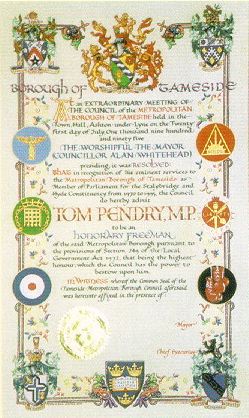 Borough of Tameside
At an EXTRAORDINARY MEETING OF
THE COUNCIL of the METROPOLITAN
BOROUGH OF TAMESIDE held in the
Town Hall, Ashton-under-Lyne on the Twenty
first day of July One thousand nine hundred
and ninety five
THE WORSHIPFUL THE MAYOR
(COUNCILLOR ALAN WHITEHEAD)
presiding, it was RESOLVED
THAT in recognition of his eminent services to
the Metropolitan Borough of Tameside as
Member of Parliament for the Stalybridge and
Hyde Constituency from 1970 to 1995, the Council
do hereby admit
TOM PENDRY, M.P.
to be an
HONORARY FREEMAN
of the said Metropolitan Borough pursuant to
the provisions of Section 249 of the Local
Government Act 1972, that being the highest
honour which the Council has the power to
bestow upon him.
IN WITNESS whereof the Common Seal of the
Tameside Metropolitan Borough Council aforesaid
was hereunto affixed in the presence of:
Mayor
Chief Executive